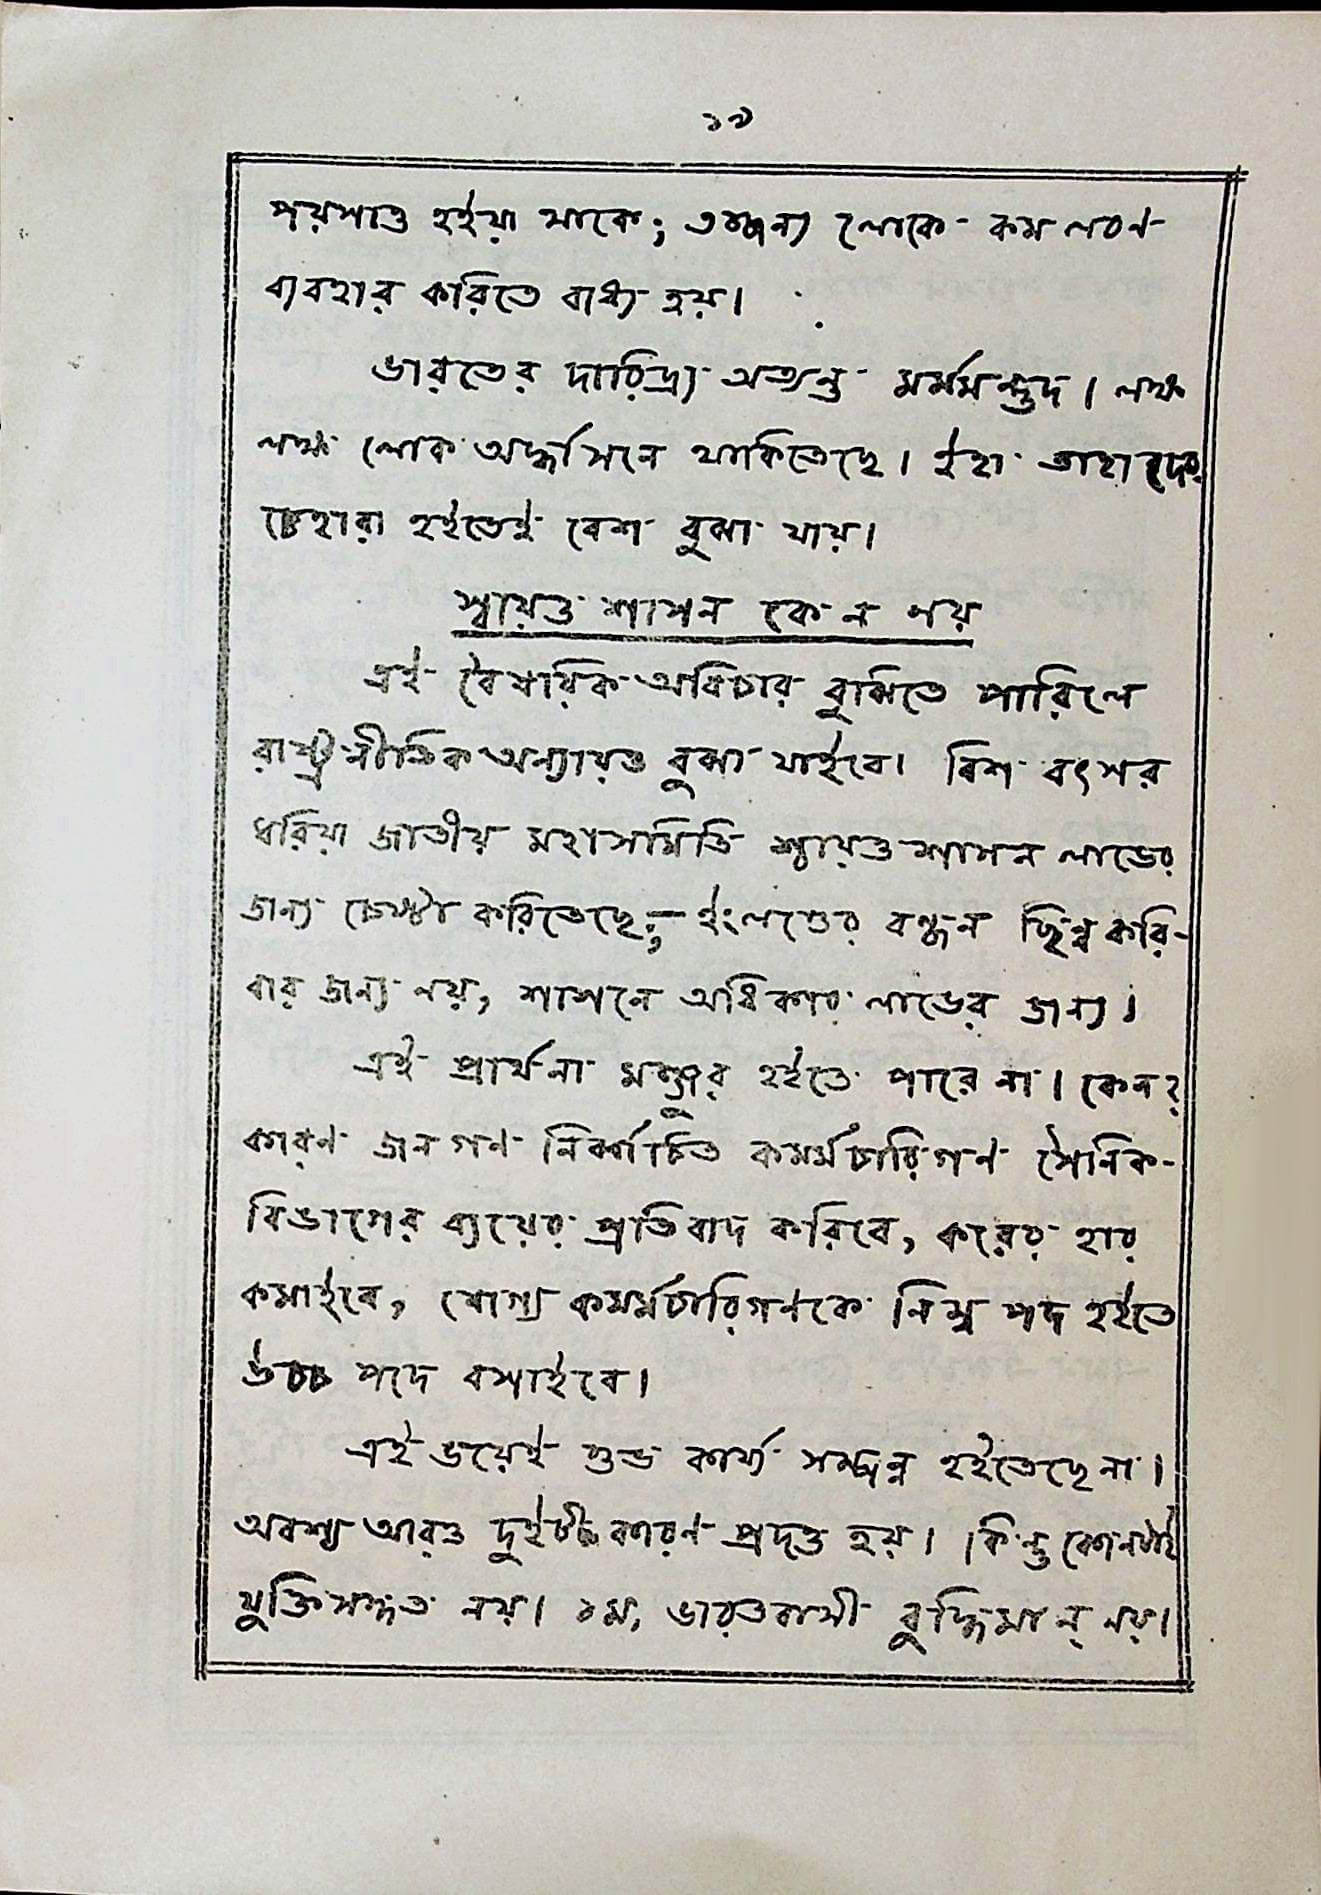 ১৯
হইয়া থাকে; তজ্জন্য লোকে কম লবণ
ব্যবহার করিতে বাধ্য হয়।
ভারতের দারিদ্র্য অত্যন্ত মর্ম্মন্তুদ। লক্ষ
লক্ষ লোক অর্দ্ধাসনে থাকিতেছে। ইহা তাহাদের
চেহারা হইতেই বেশ বুঝা যায়।
স্বায়ত্ত শাসন কেন নয়
এই বৈষয়িক অবিচার বুঝিতে পারিলে
রাষ্ট্রনীতিক অন্যায়ও বুঝা যাইবে। বিশ বৎসর
ধরিয়া জাতীয় মহাসমিতি স্বায়ত্ত শাসন লাভের
জন্য চেষ্টা করিতেছে;— ইংলণ্ডের বন্ধন ছিন্ন করি-
বার জন্য নয়, শাসনে অধিকার লাভের জন্য।
এই প্রার্থনা মঞ্জুর হইতে পারে না। কেন?
কারণ জনগণ নির্ব্বাচিত কর্ম্মচারিগণ সৈনিক-
বিভাগের ব্যয়ের প্রতিবাদ করিবে, করের হার
কমাইবে, যোগ্য কর্ম্মচারিগণকে নিম্ন পদ হইতে
উচ্চ পদে বসাইবে।
এই ভয়েই শুভ কার্য্য সম্পন্ন হইতেছে না।
অবশ্য আরও দুইটী কারণ প্রদত্ত হয়। কিন্তু কোনটাই
যুক্তিসঙ্গত নয়। ১ম, ভারতবাসী বুদ্ধিমান্ নয়।